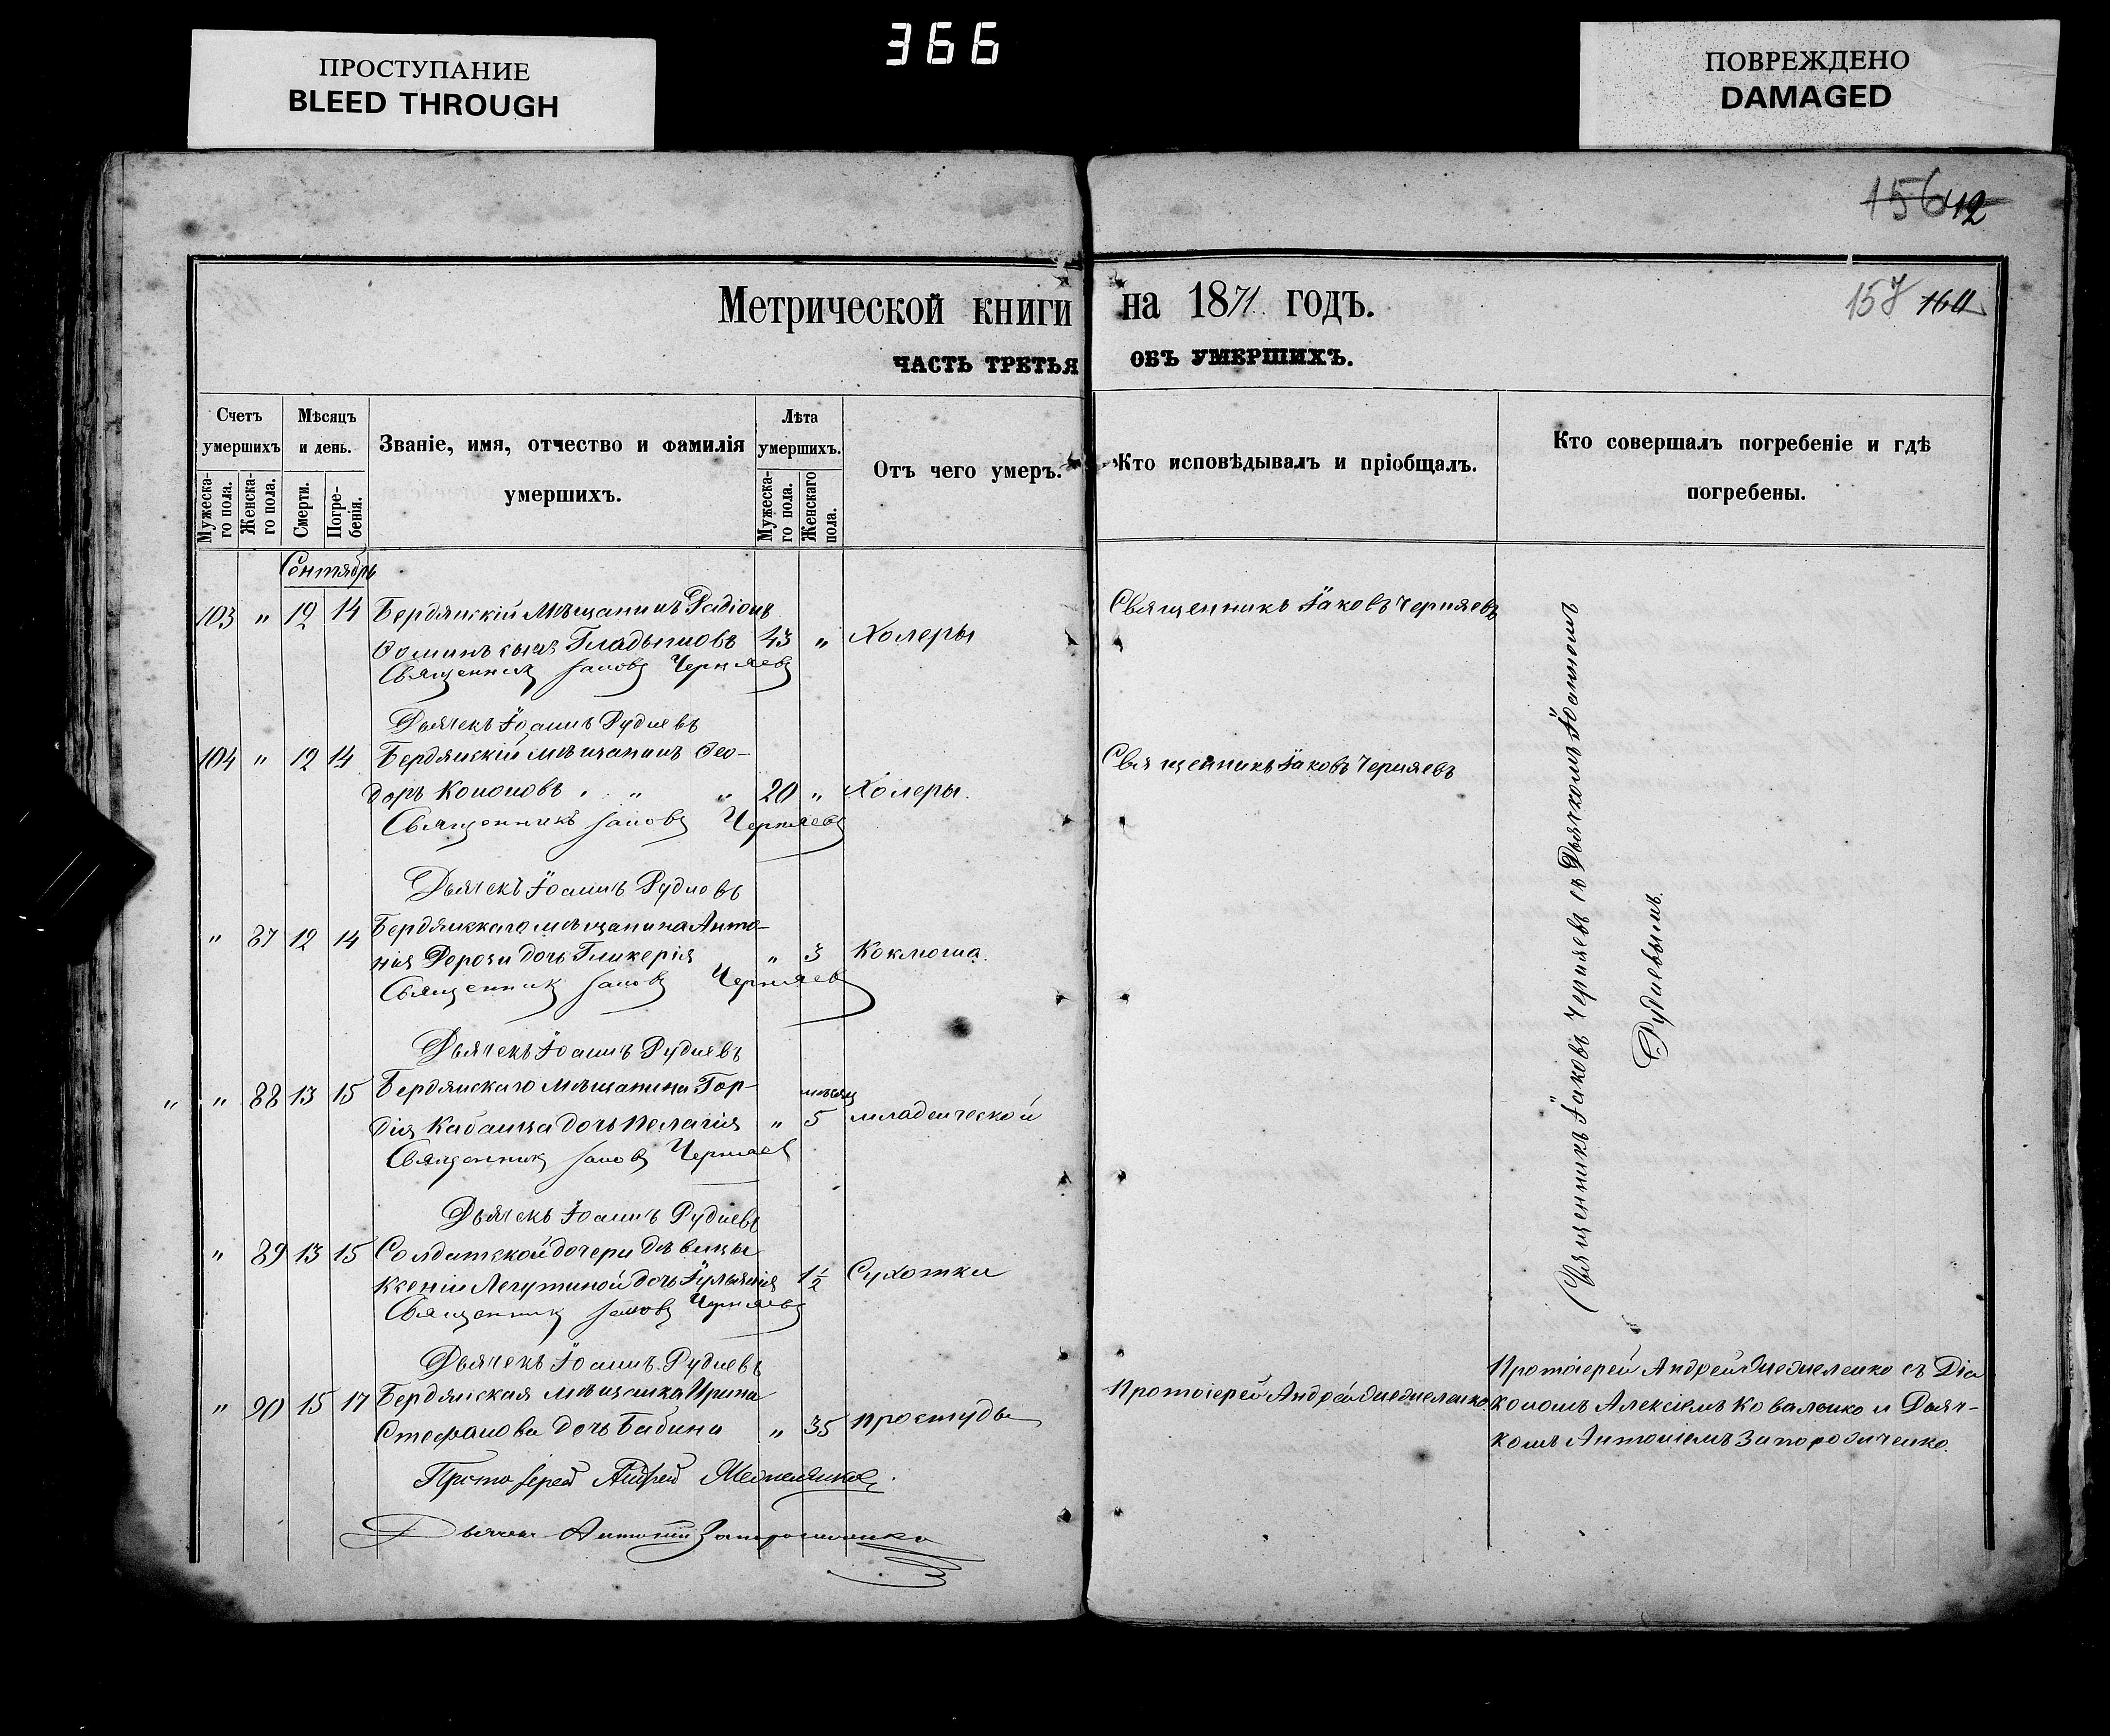 366
ПРОСТУПАНИЕ
BLEED THROUGH
ПОВРЕЖДЕНО
DAMAGED
156 112
157 160
Метрической книги на 1871 годъ.
ЧАСТЬ ТРЕТЬЯ ОБЪ УМЕРШИХЪ.
Счетъ умершихъ
Мужеска-го пола.
Женска-го пола.
Мѣсяцъ и день.
Смерти.
Погре-бенія.
Званіе, имя, отчество и фамилія
умершихъ.
Лѣта умершихъ.
Мужеска-го пола.
Женскаго пола.
Отъ чего умеръ.
Кто исповѣдывалъ и пріобщалъ.
Кто совершалъ погребеніе и гдѣ
погребены.
Сентябрь
103 " 12 14 Бердянскій Мѣщанинъ Радіонъ Священникъ Іаковъ Черняевъ
Ѳоминъ сынъ Гладышовъ 43 " Холеры
Священникъ Іаковъ Черняевъ
Дьячекъ Іоаннъ Рудневъ
104 " 12 14 Бердянскій мѣщанинъ Ѳео- Священникъ Іаковъ Черняевъ
доръ Кононовъ " " 20 " Холеры.
Священникъ Іаковъ Черняевъ
Дьячекъ Іоаннъ Рудневъ
" 87 12 14 Бердянскаго мѣщанина Анто-
нія дочь Гликерія " 3 Коклюша.
Священникъ Іаковъ Черняевъ
Дьячекъ Іоаннъ Рудневъ
" " 88 13 15 Бердянскаго Мѣщанина Гор- мѣсяц
дія Кабанца дочь Пелагія " 5 младенческой
Священникъ Іаковъ Черняев
Дьячекъ Іоаннъ Рудневъ
" 89 13 15 Солдатской дочери дѣвицы
Ксеніи Легутиной дочь Іульянія 1½ Сухотки
Священникъ Іаковъ Черняевъ
Дьячекъ Іоаннъ Рудневъ
Священникъ Іаковъ Черняевъ съ Дьячкомъ Іоанномъ
Рудневымъ.
" 90 15 17 Бердянская мѣщанка Ирина Протоіерей Андрей
Стефанова дочь Бабина " 35 простуды
Протоіерей Андрей съ Діа
кономъ Алексіемъ Коваленко и Дьяч-
комъ Антоніемъ Запорожченко.
Протоіерей Андрей
Дьячекъ Антоній Запорожченко